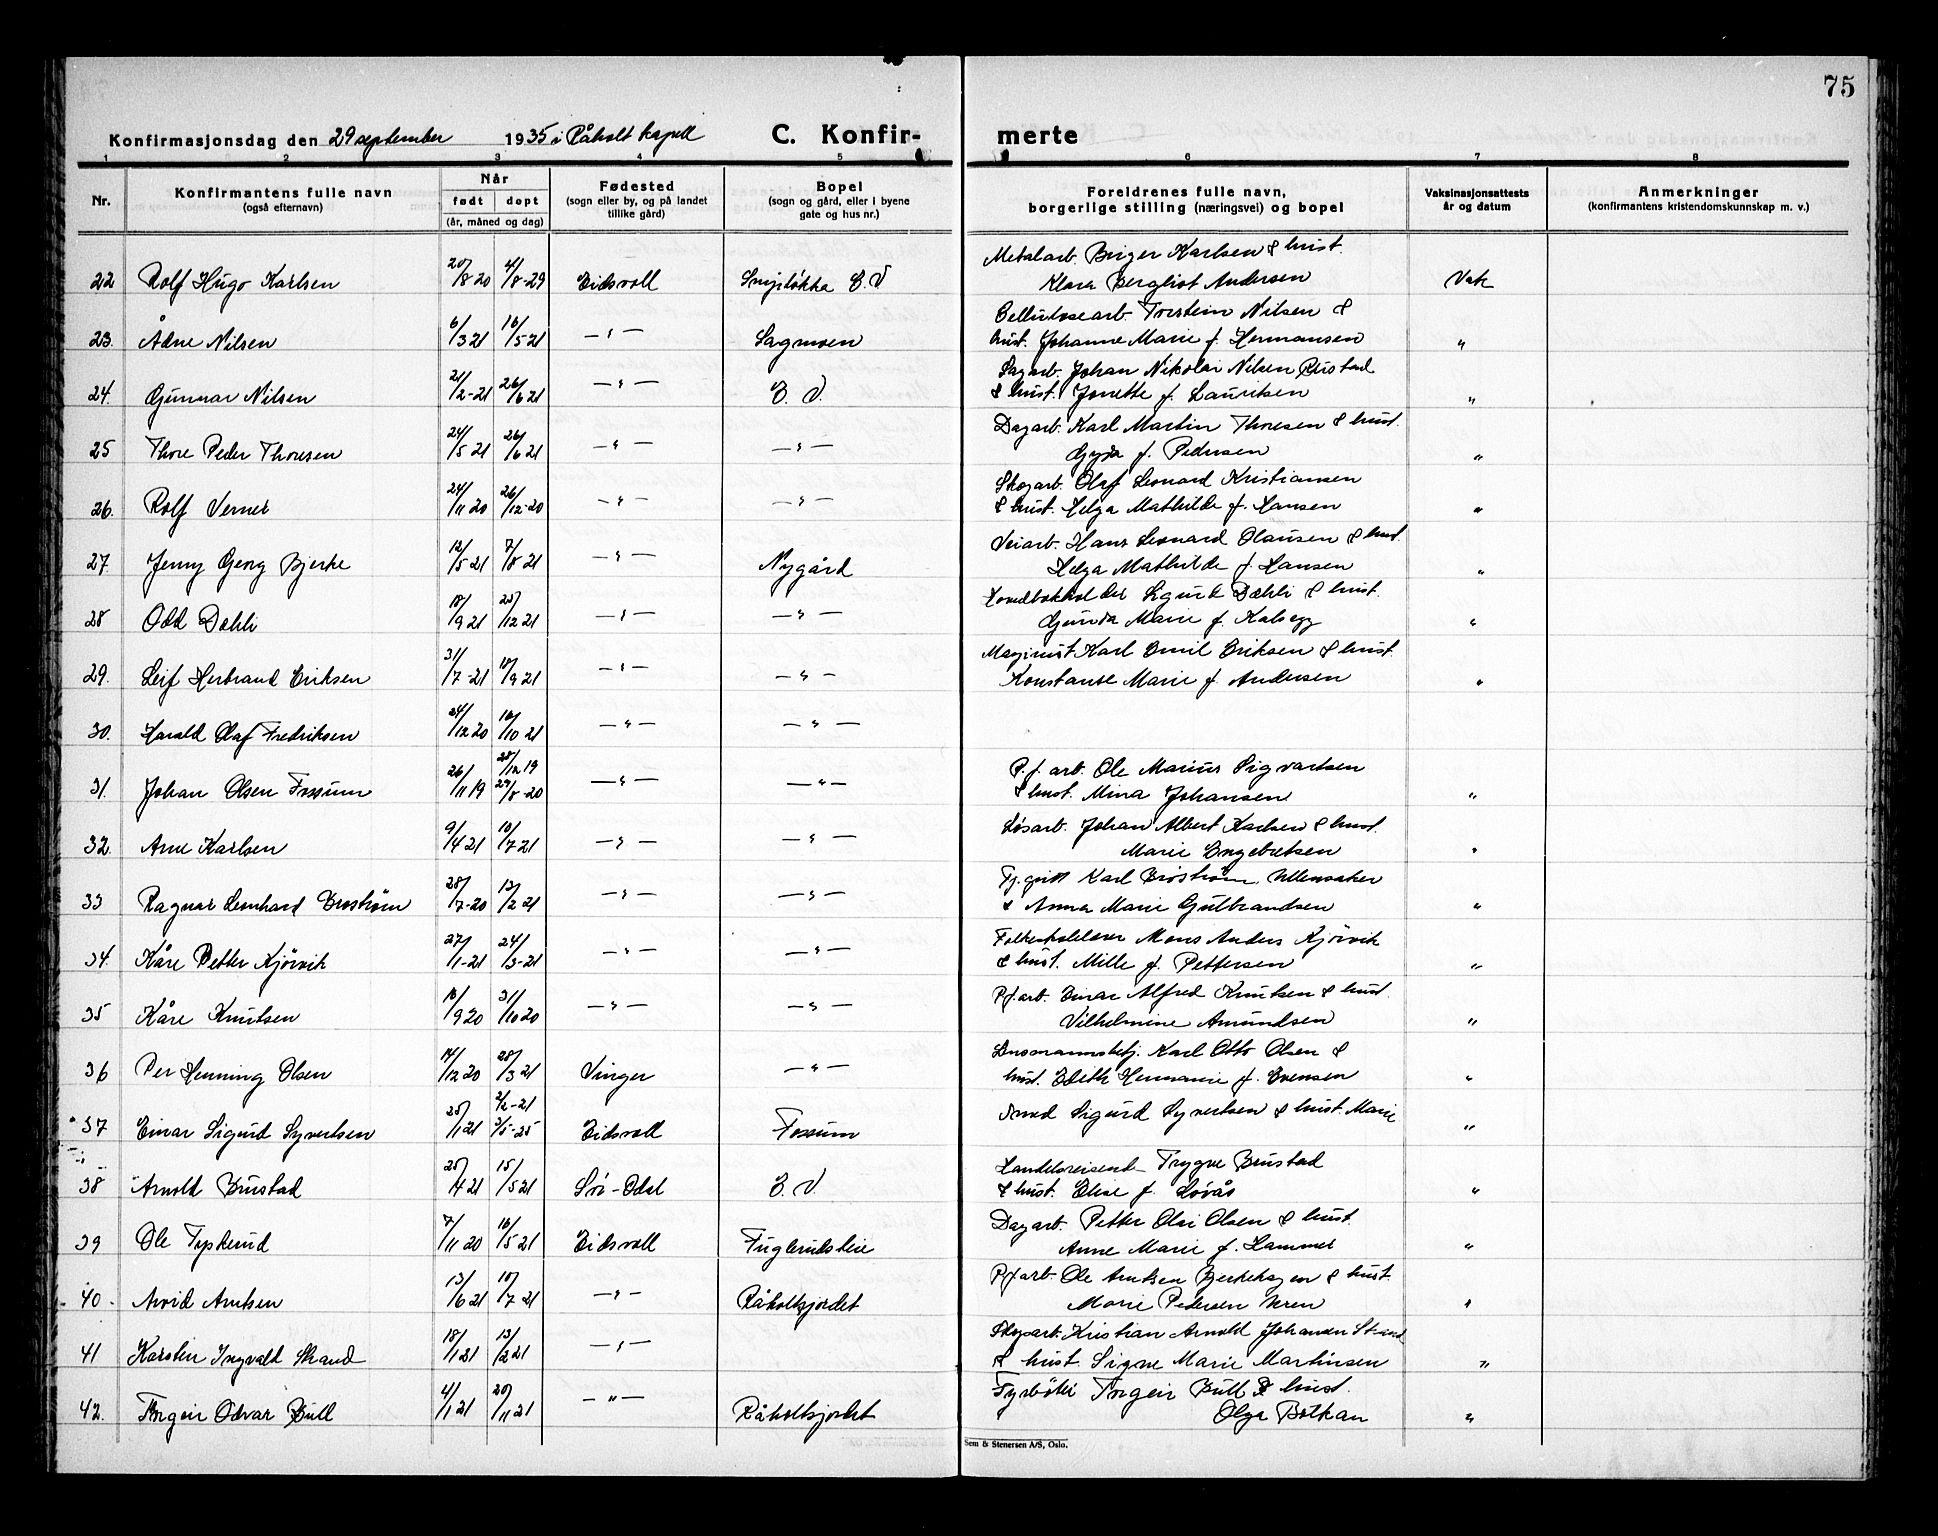 75
Konfirmasjonsdag den 29 september 1935 i Råholt kapell C. Konfir- merte
1 2 3 4 5 6 7 8
Nr. Konfirmantens fulle navn (også efternavn) Når født døpt (år, måned og dag) Fødested (sogn eller by, og på landet tillike gård) Bopel (sogn og gård, eller i byene gate og hus nr.) Foreldrenes fulle navn, borgerlige stilling (næringsvei) og bopel Vaksinasjonsattests år og datum Anmerkninger (konfirmantens kristendomskunnskap m. v.)
Metalarb. Birger Karlsen & hust.
22 Rolf Hugo Karlsen 20/8 20 4/8-29 Eidsvoll E. V Klara Bergliot Andersen Vak
Cellulosearb. Torstein Nilsen &
23. Ådne Nilsen 6/3 21 16/5-21 -„- Sagmoen hust. Johanne Marie f. Hermansen „
Sagarb. Johan Nikolai Nilsen Rustad
24. Gunnar Nilsen 21/2-21 26/6 21 -„- E. V. & hust. Jonette f. Lauritsen „
Dagarb. Karl Martin Thoresen & hust.
25 Thore Peder Thoresen 24/5 21 26/6 21 -„- -„- Gyda f. Pedersen „
Skogarb. Olaf Leonard Kristiansen
26. Rolf Verner 24/11 20 26/12-20 -„- -„- & hust. Helga Mathilde f. Hansen „
Veiarb. Hans Leonard Olaussen & hust.
27. Jenny Georg Bjerke 12/5 21 7/8 21 -„- Nygård Helga Mathilde f. Hansen „
Hovedbokholder Sigurd Dæhli & hust.
28 Odd Dæhli 18/9 21 25/12 21 -„- -„- Gunda Marie f. Kalsegg „
Maskinist Karl Emil Eriksen & hust.
29. Leif Herbrand Eriksen 31/7-21 18/9 21 -„- -„- Konstanse Marie f. Andersen „
30. Harald Olaf Fredriksen 24/12 20 16/10 21 -„- -„-
28/12 19 P.f. arb. Ole Marius Sigvartsen
31. Johan Olsen Fossum 26/11 19 29/8-20 -„- -„- & hust. Mina Johansen „
Løsarb. Johan Albert Karlsen & hust.
32. Arne Karlsen 9/4 21 10/7 21 -„- -„- Marie Engebretsen „
Tj.gutt Karl Broström, Ullensaker
33 Ragnar Leonhard Broström 28/7-20 13/2 21 -„- -„- & Anna Marie Gulbrandsen „
Folkeskolelærer Mons Anders Kjörvik
34. Kåre Petter Kjörvik 27/1-21 24/3-21 -„- -„- & hust. Mille f. Pettersen „
P.f.arb. Einar Alfred Knutsen & hust.
35 Kåre Knutsen 16/9 20 31/10 20 -„- -„- Vilhelmine Amundsen „
Lensmannsbetj. Karl Otto Olsen &
36 Per Henning Olsen 14/12 20 28/3 21 Vinger -„- hust. Edith Hermanie f. Evensen „
2/2-21 Sigurd Syvertsen & hust. Marie
37 Einar Sigurd Syvertsen 25/1 21 3/5-25 Eidsvoll Fossum „
Handelsreisende Trygve Brustad
38 Arnold Brustad 25/4 21 15/5 21 Sör-Odal E. V. & hust. Elise f. Lövås „
Dagarb. Petter Olai Olsen & hust.
39 Ole Tyskerud 7/11 20 16/5 21 Eidsvoll Fuglerudseie Anne Marie f. Hammer „
P.f.arb. Ole Arntsen & hust.
40 Arvid Arntsen 13/6 21 10/7 21 -„- Råholtsjordet Marie Pedersen „
Skogarb. Kristian Arnold Johansen Strand
41 Karsten Ingvald Strand 18/1 21 13/2 21 -„- & hust. Signe Marie Martinsen „
Fyrbøter Torgeir Bull & hust.
42. Torgeir Odvar Bull 4/1 21 20/11 21 -„- Råholtsjordet Olga „
Sem & Stenersen A/S, Oslo.